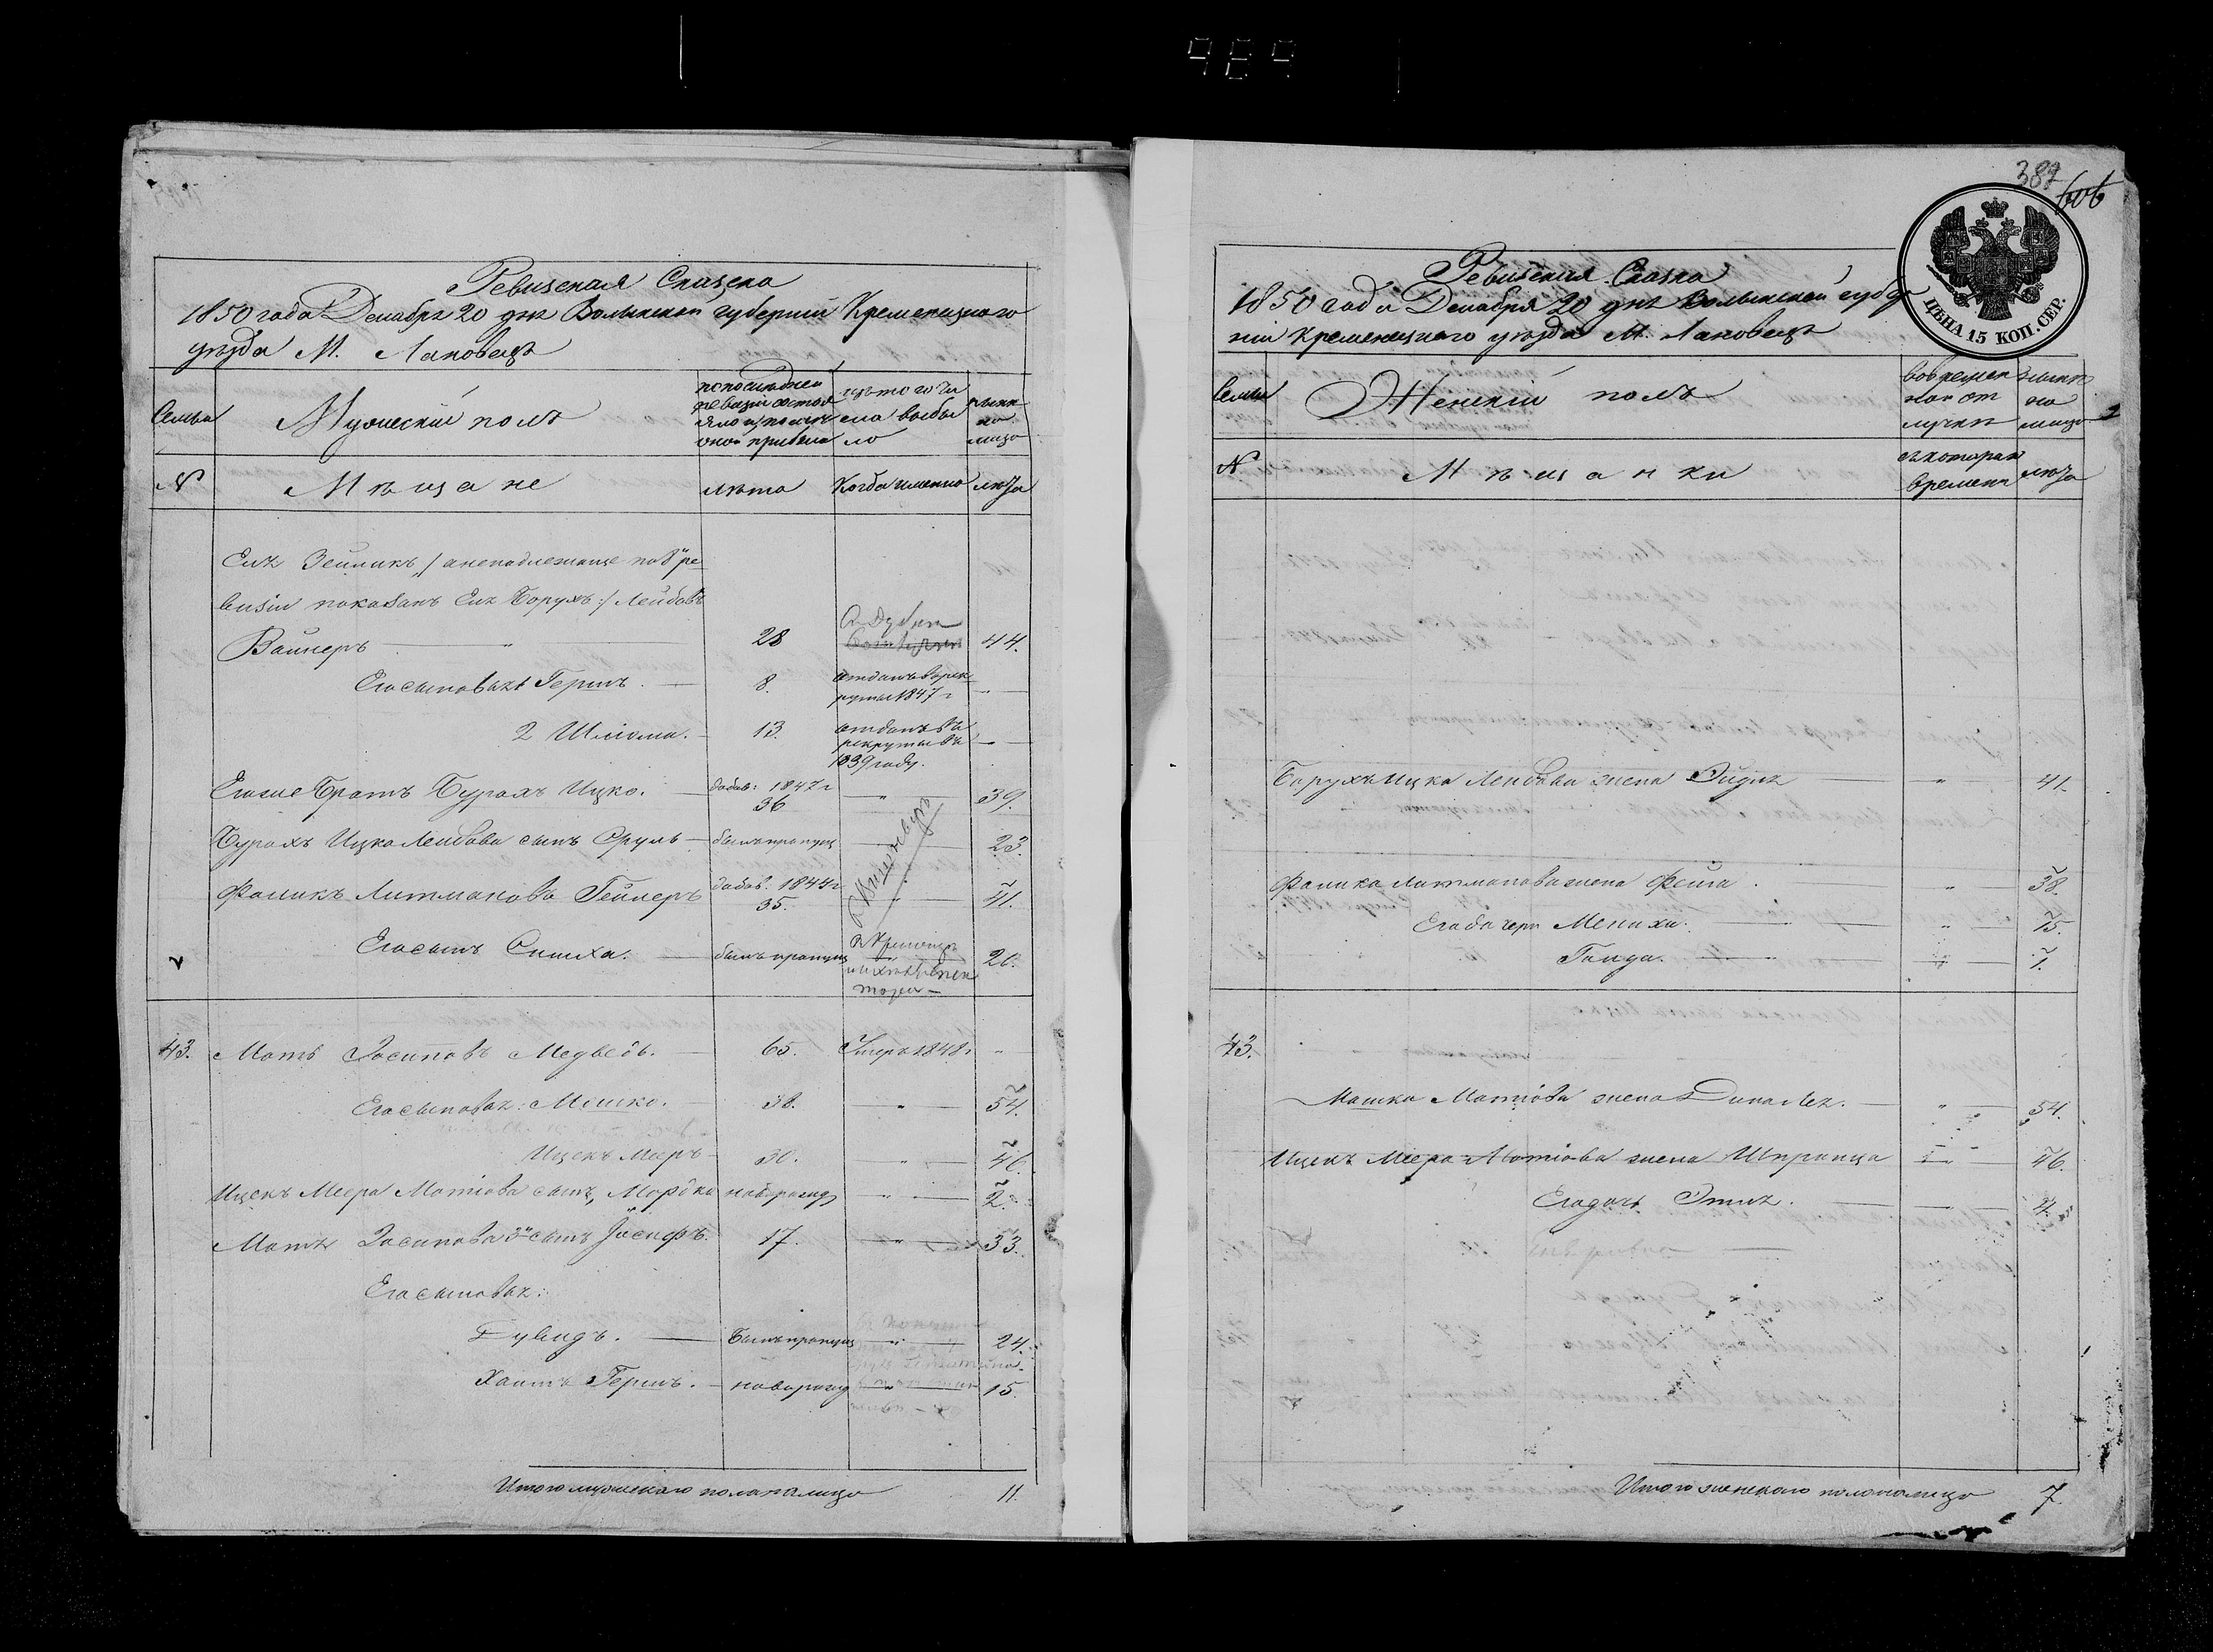 469
Ревизская Сказка
1850 года Декабря 20 дня Волынской губернии Кременецкого
уезда М. Лановець
Семьи
Мужеский полъ
по последней
ревизии состоя
ло и после
оной прибыло
изъ того чи
сла выбы
ло
ныне
на
лицо
№
Мещане
лета
Когда именно
лета
Елъ Зейликъ /: а неподлежаще по 8й ре
визiи показанъ Елъ Борухъ :/ Лейбовъ
Вайнеръ — 28 44.
Его сыновья 1 Гершъ. — 8. отданъ въ рек
руты 1847 г —
2 Шлиома. — 13. отданъ въ
рекруты въ
1839 году. —
Его же Братъ Бурахъ Ицко. — добав: 1847 г
36 „ — 39.
Бурахъ Ицка Лейбова сынъ Сруль — былъ пропущ — 23.
Фаликъ Литманова Гейлеръ добав. 1844 г
35. „ — 41.
v Его сынъ Симха. — былъ пропущ 20.
43. Мотя Иосиповъ Медведь. — 65. Умеръ 1848 г „
Его сыновья: Мошко. — 38. „ — 54.
Ицекъ Мееръ — 30. „ — 46.
Ицекъ Меера Мотiова сынъ, Мордко новорожд „ — 2.
Мотя Иосипова 3й сынъ Iосифъ. 17. „ — 33.
Его сыновья:
Дувидъ. — Былъ пропущ „ — 24.
Хаимъ Гершъ. — новорожд „ — 15.
Итого мужескаго пола налицо 11.
387
606
ЦѢНА 15 КОП. СЕР.
Ревизская Сказка
1850 года Декабря 20 дня Волынской губер
нии Кременецкого уезда М. Лановець
Семьи
Женскiй полъ
во времен
ной от
лучке
ныне
на
лицо
№
Мещанки
съ котораго
времени
лета
Борухъ Ицка Лейбова жена Эйдля — „ — 41.
Фалика Литманова жена Фейга. — „ — 38.
Его дочери Мениха. — „ — 15.
Голда. — „ — 1.
43.
Мошка Мотiова жена Дина Лея. — „ — 54.
Ицекъ Меера Мотiова жена Шпринца „ — 46.
Его дочь Этля. — — 4.
Итого женскаго пола налицо 7.